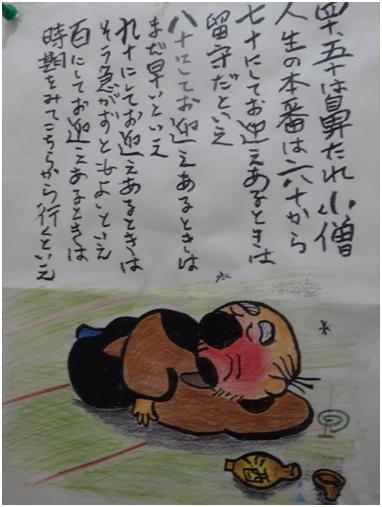 四十、五十は鼻たれ小僧
人生の本番は六十から
七十にしてお迎えあるときは
留守だといえ
八十にしてお迎えあるときは
まだ早いといえ
九十にしてお迎えあるときは
そう急がずともよいといえ
百にしてお迎えあるときは
時期をみてこちらから行くといえ
酒